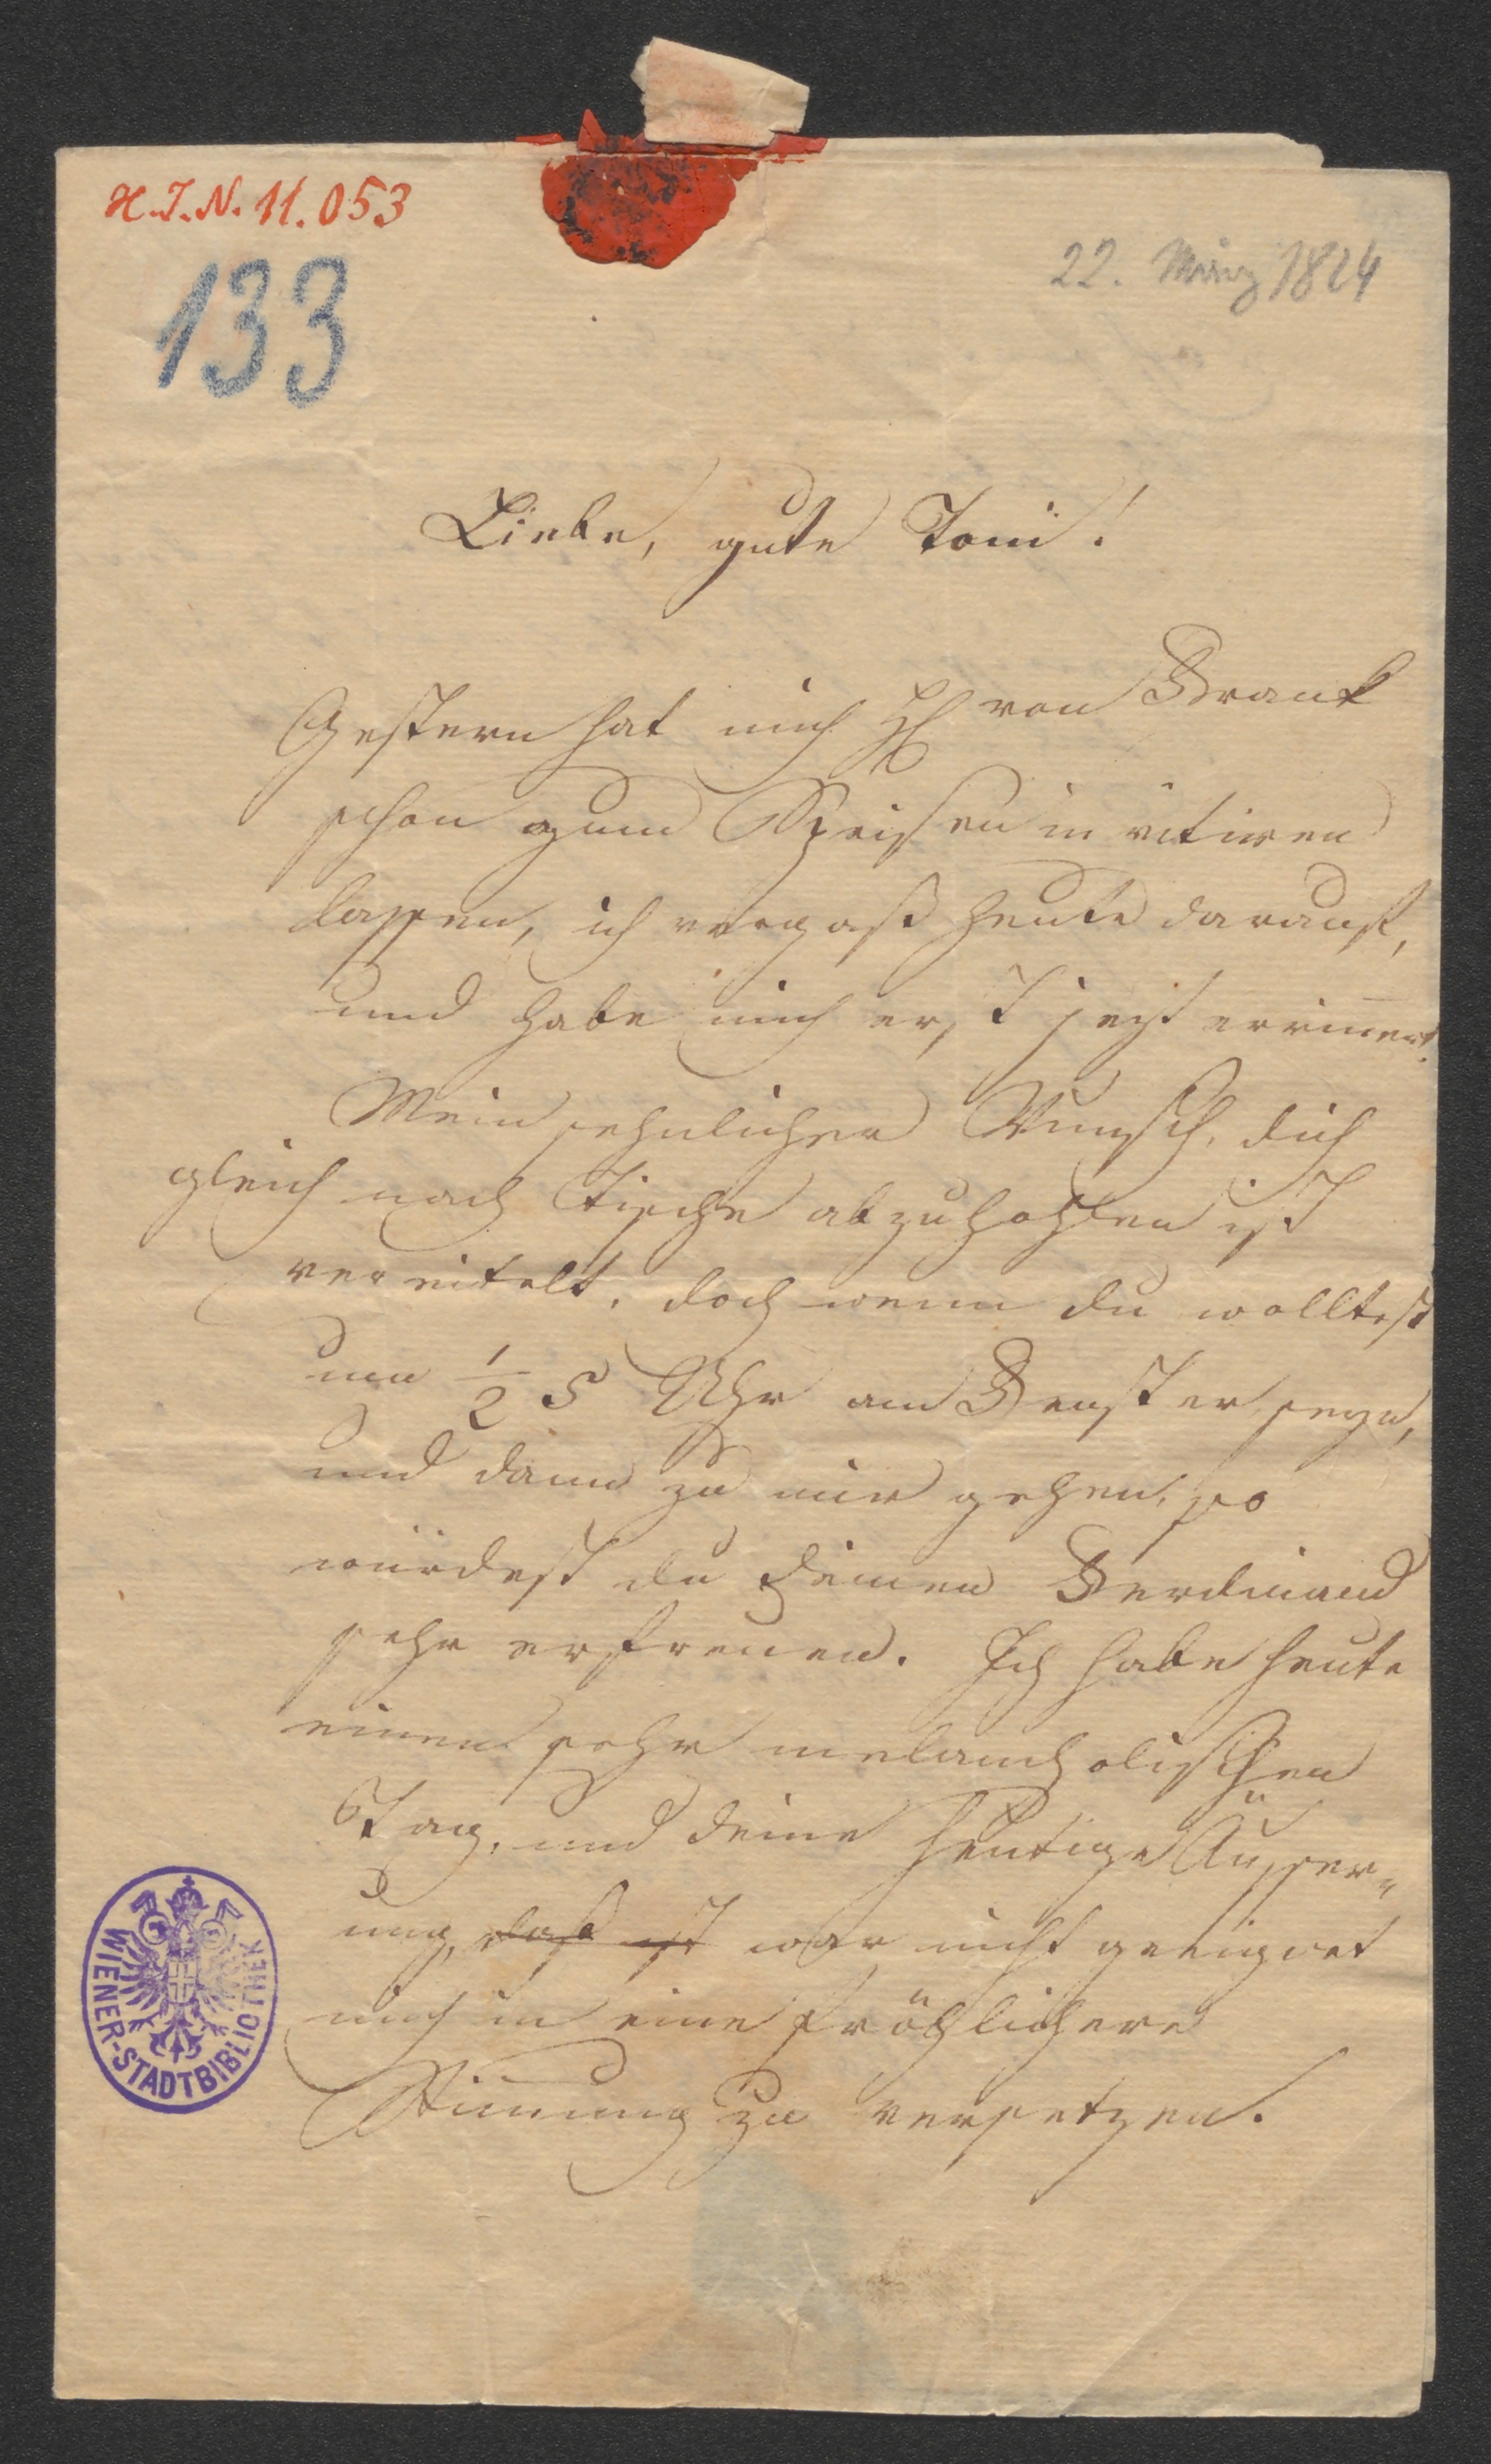 H.I.N. 11.053
133
22. März 1824
Liebe, gute Toni!
Gestern hat mich H von Frank
schon zum Speisen invitiren
lassen, ich vergaß heute darauf,
und habe mich erst jezt errinnert.
Mein sehnlicher Wunsch, dich
gleich nach Tische abzuhohlen ist
vereitelt, doch wenn du wolltest
um ½ 5 Uhr am Fenster seyn,
und dann zu mir gehen, so
würdest du deinen Ferdinand
sehr erfreuen. Ich habe heute
einen sehr melancholischen
Tag, und deine heutige Äusser-
ung, daß ist war nicht geeignet
mich in eine fröhlichere
Stimung zu versetzen.
WIENER-STADTBIBLIOTHEK